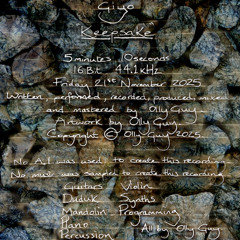 Giyo
Keepsake
5 minutes 10 seconds
16 Bit 44.1 kHz
Friday 21st November 2025
Written, performed, recorded, produced, mixed
and mastered by Olly Guy.
Artwork by Olly Guy
Copyright © Olly Guy 2025.
No A.I was used to create this recording.
No music was sampled to create this recording
Guitars Violin
Duduk Synths
Mandolin Programming
Piano
Percussion All by Olly Guy.